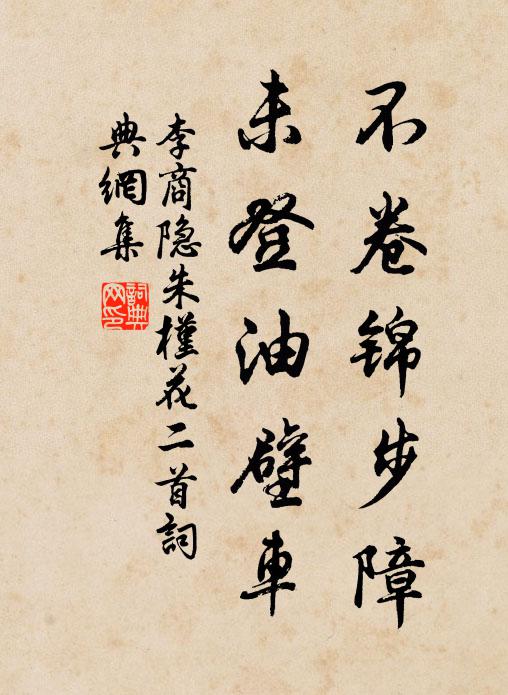 不卷锦步障
未登油壁車
李商隐朱槿花二首詞
典網集
詞典
网印